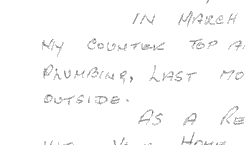 IN MARCH
MY COUNTER TOP A
PLUMBING, LAST MO
OUTSIDE.
AS A RE
YOUR HOME